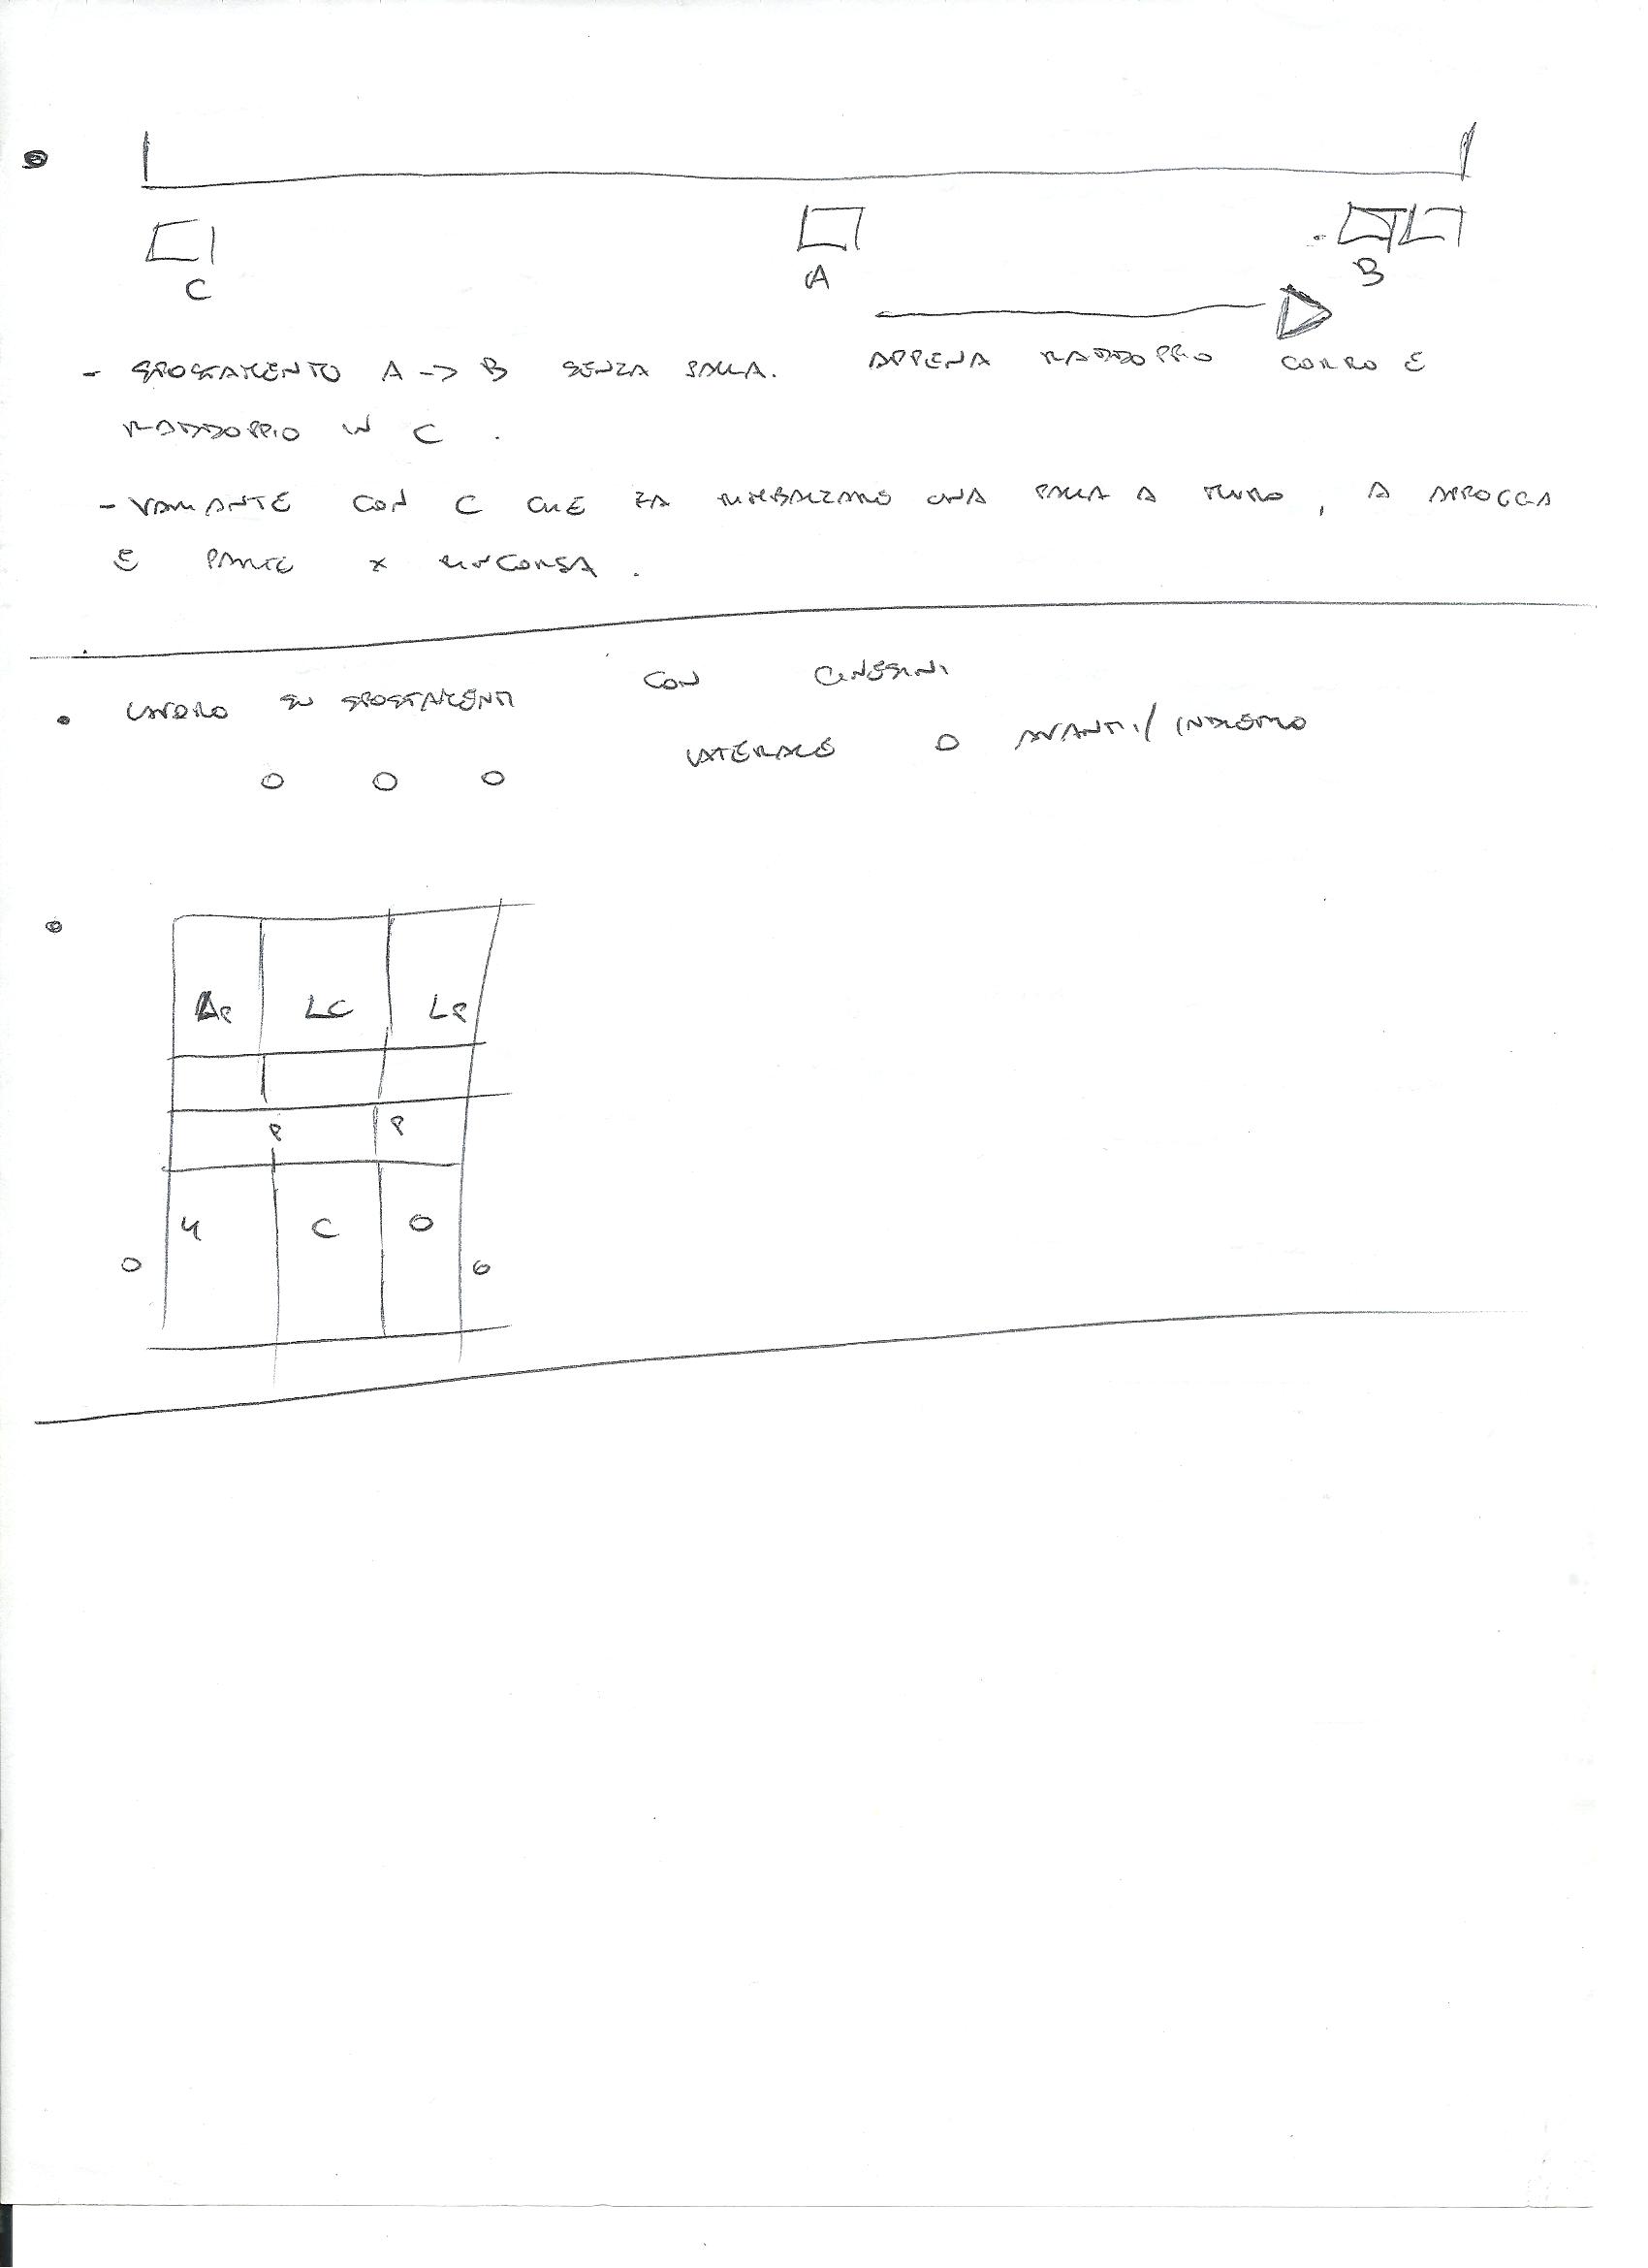 C A B
- SPOSTAMENTO A -> B SENZA PALLA. APPENA RADDOPPIO CORRO E
RADDOPPIO IN C.
- VARIANTE CON C CHE FA RIMBALZARE UNA PALLA A MURO, A APPOGGIA
E PARTE X RINCORSA.
• LAVORO SU SPOSTAMENTI CON CINESINI
LATERALE O AVANTI/INDIETRO
LC LP
P P
4 C O